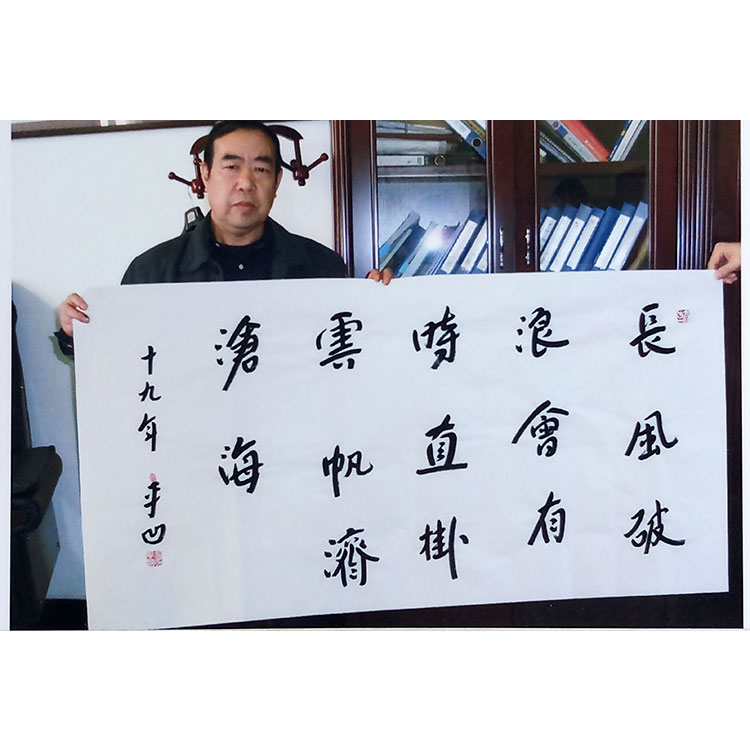 長風破
浪會有
時直掛
雲帆濟
滄海
十九年 平凹